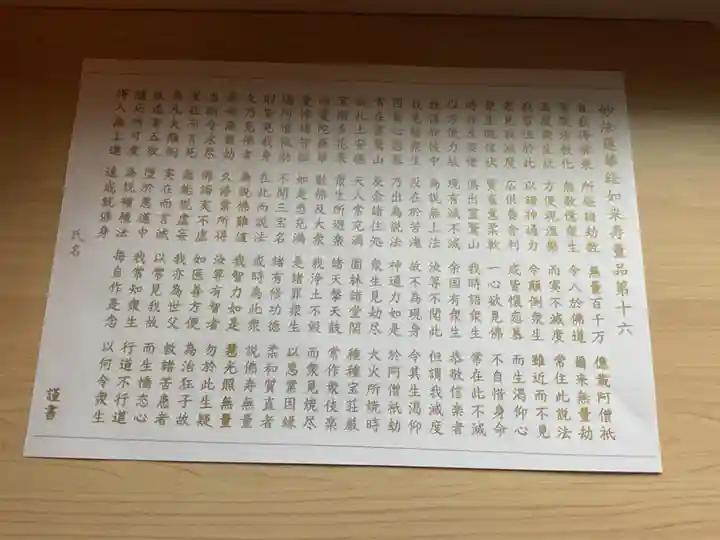 妙法蓮華経如来寿量品第十六
自我得佛来 所経諸劫数 無量百千万 億載阿僧祇
常説法教化 無数億衆生 令入於佛道 爾来無量劫
為度衆生故 方便現涅槃 而実不滅度 常住此説法
我常住於此 以諸神通力 令顛倒衆生 雖近而不見
衆見我滅度 広供養舎利 咸皆懐恋慕 而生渇仰心
衆生既信伏 質直意柔軟 一心欲見佛 不自惜身命
時我及衆僧 倶出霊鷲山 我時語衆生 常在此不滅
以方便力故 現有滅不滅 余国有衆生 恭敬信楽者
我復於彼中 為説無上法 汝等不聞此 但謂我滅度
我見諸衆生 没在於苦海 故不為現身 令其生渇仰
因其心恋慕 乃出為説法 神通力如是 於阿僧祇劫
常在霊鷲山 及余諸住処 衆生見劫尽 大火所焼時
我此土安穏 天人常充満 園林諸堂閣 種種宝荘厳
宝樹多花果 衆生所遊楽 諸天撃天鼓 常作衆伎楽
雨曼陀羅華 散佛及大衆 我浄土不毀 而衆見焼尽
憂怖諸苦悩 如是悉充満 是諸罪衆生 以悪業因縁
過阿僧祇劫 不聞三宝名 諸有修功徳 柔和質直者
則皆見我身 在此而説法 或時為此衆 説佛寿無量
久乃見佛者 為説佛難値 我智力如是 慧光照無量
寿命無数劫 久修業所得 汝等有智者 勿於此生疑
当断令永尽 佛語実不虚 如医善方便 為治狂子故
実在而言死 無能説虚妄 我亦為世父 救諸苦患者
為凡夫顛倒 実在而言滅 以常見我故 而生憍恣心
放逸著五欲 堕於悪道中 我常知衆生 行道不行道
随応所可度 為説種種法 毎自作是念 以何令衆生
得入無上道 速成就佛身
氏名 謹書